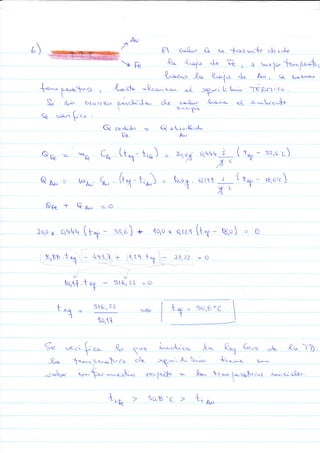 6)
Au
Fe
El calor Q se transmite desde
la hoja de Fe, a mayor temperatura,
hacia la hoja de Au, a menor
temperatura, hasta alcanzar el equilibrio TÉRMICO.
Si no ocurren pérdidas de energía hacia el ambiente
se verifica:
Q cedido = Q absorbido
Fe Au
QFe = mFe CFe (teq - tiFe) = 20,0g 0,444 J/g°C (teq - 55,6°C)
QAu = mAu CAu (teq - tiAu) = 10,0g 0,129 J/g°C (teq - 18,0°C)
QFe + QAu = 0
20,0 x 0,444 (teq - 55,6) + 10,0 x 0,129 (teq - 18,0) = 0
8,88 teq - 493,7 + 1,29 teq - 23,22 = 0
10,17 teq - 516,22 = 0
teq = 516,22 / 10,17 => teq = 50,8°C
Se verifica lo que indica la Ley Cero de la TD.
La temperatura de equilibrio tiene un
valor intermedio respecto a las temperaturas iniciales.
tiFe > 50,8°C > tiAu